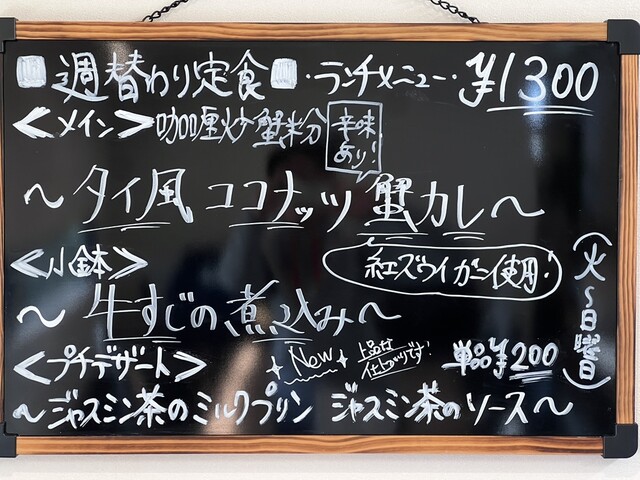 週替わり定食 ・ランチメニュー・ ¥1300
≪メイン≫ 咖喱炒蟹粉 辛味あり!
～タイ風 ココナッツ 蟹カレ～
≪小鉢≫ 紅ズワイガニ使用!
～牛すじの煮込み～
(火～日曜日)
≪プチデザート≫ New 上品な仕上がりです! 単品¥200
～ジャスミン茶のミルクプリン ジャスミン茶のソース～